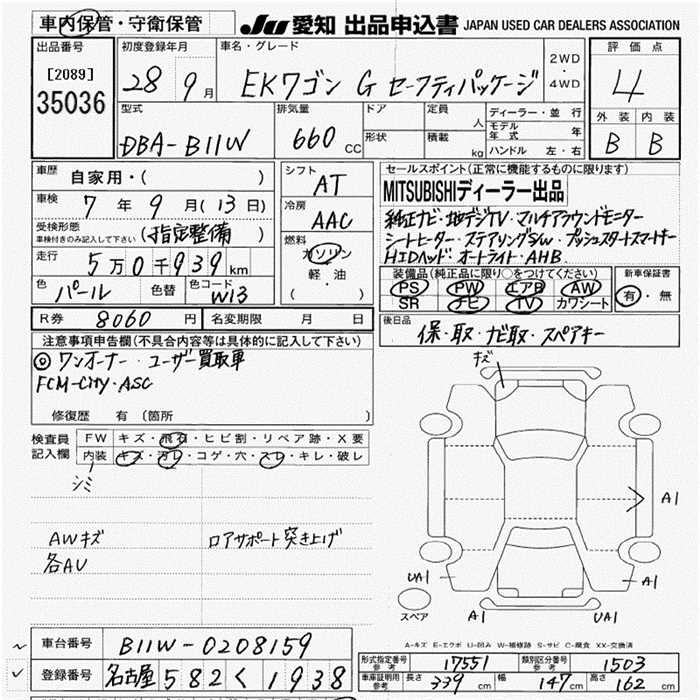 車内保管・守衛保管
JU 愛知 出品申込書 JAPAN USED CAR DEALERS ASSOCIATION
出品番号
[2089]
35036
初度登録年月
28 9月
車名・グレード
EKワゴン G セーフティパッケージ
2WD
・
4WD
評価点
4
外装 内装
B B
型式
DBA-B11W
排気量
660 CC
ドア
形状
定員 人
積載 kg
ディーラー・並行
モデル年式 年
ハンドル 左・右
車歴 自家用・( )
車検 7年 9月(13日)
受検形態
車検付きのみ記入して下さい (指定整備)
走行 5万0千939km
色 パール 色替 色コード W13
シフト AT
冷房 AAC
燃料
ガソリン
軽油
( )
セールスポイント(正常に機能するものに限ります)
MITSUBISHIディーラー出品
純正ナビ・地デジTV・マルチアラウンドモニター
シートヒーター・ステアリングSW・プッシュスタートスマートキー
HIDヘッド オートライト・AHB.
装備品(純正品に限り○をつけてください)
PS PW エアB AW
SR ナビ TV カワシート
新車保証書
有・無
R券 8060円 名変期限 月 日
後日品 保・取・ナビ取・スペアキー
注意事項申告欄(不具合内容等は具体的に記入して下さい)
◎ワンオーナー・ユーザー買取車
FCM-CITY・ASC
修復歴 有(箇所 )
検査員記入欄
FW キズ・飛石・ヒビ割・リペア跡・X要
内装 キズ・汚レ・コゲ・穴・スレ・キレ・破レ
シミ
AWキズ ロアサポート突き上げ
各AU
キズ
A1
UA1 A1
スペア
A1 UA1
A-キズ E-エクボ U-凹み W-補修跡 S-サビ C-腐食 XX-交換済
車台番号 B11W-0208159
登録番号 名古屋 582 く 1938
形式指定番号 参考 17551 類別区分番号 参考 1503
車庫証明用 参考 長さ 339cm 幅 147cm 高さ 162cm